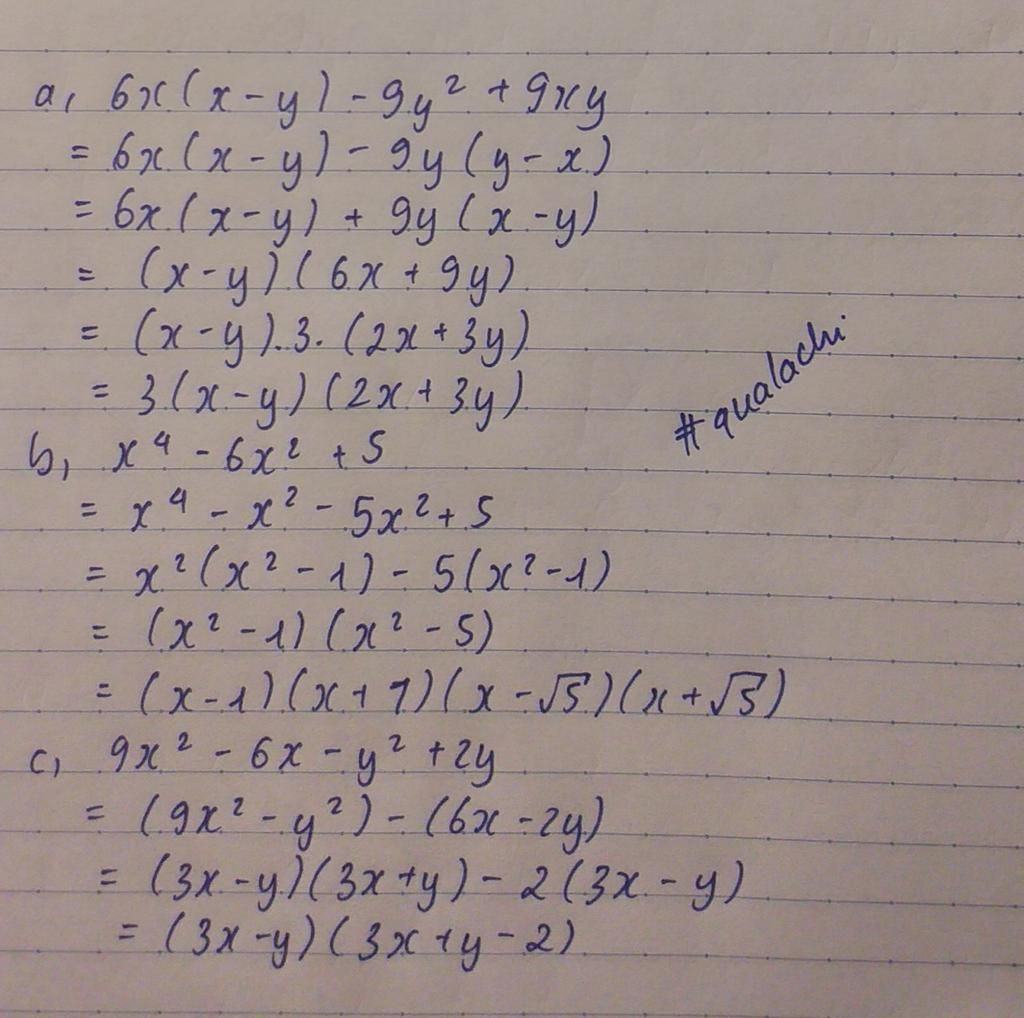 a, 6x(x-y) - 9y² + 9xy
= 6x(x-y) - 9y(y-x)
= 6x(x-y) + 9y(x-y)
= (x-y)(6x+9y)
= (x-y).3.(2x+3y)
= 3(x-y)(2x+3y)
#qualachi
b, x⁴ - 6x² + 5
= x⁴ - x² - 5x² + 5
= x²(x²-1) - 5(x²-1)
= (x²-1)(x²-5)
= (x-1)(x+1)(x-√5)(x+√5)
c, 9x² - 6x - y² + 2y
= (9x² - y²) - (6x - 2y)
= (3x-y)(3x+y) - 2(3x-y)
= (3x-y)(3x+y-2)